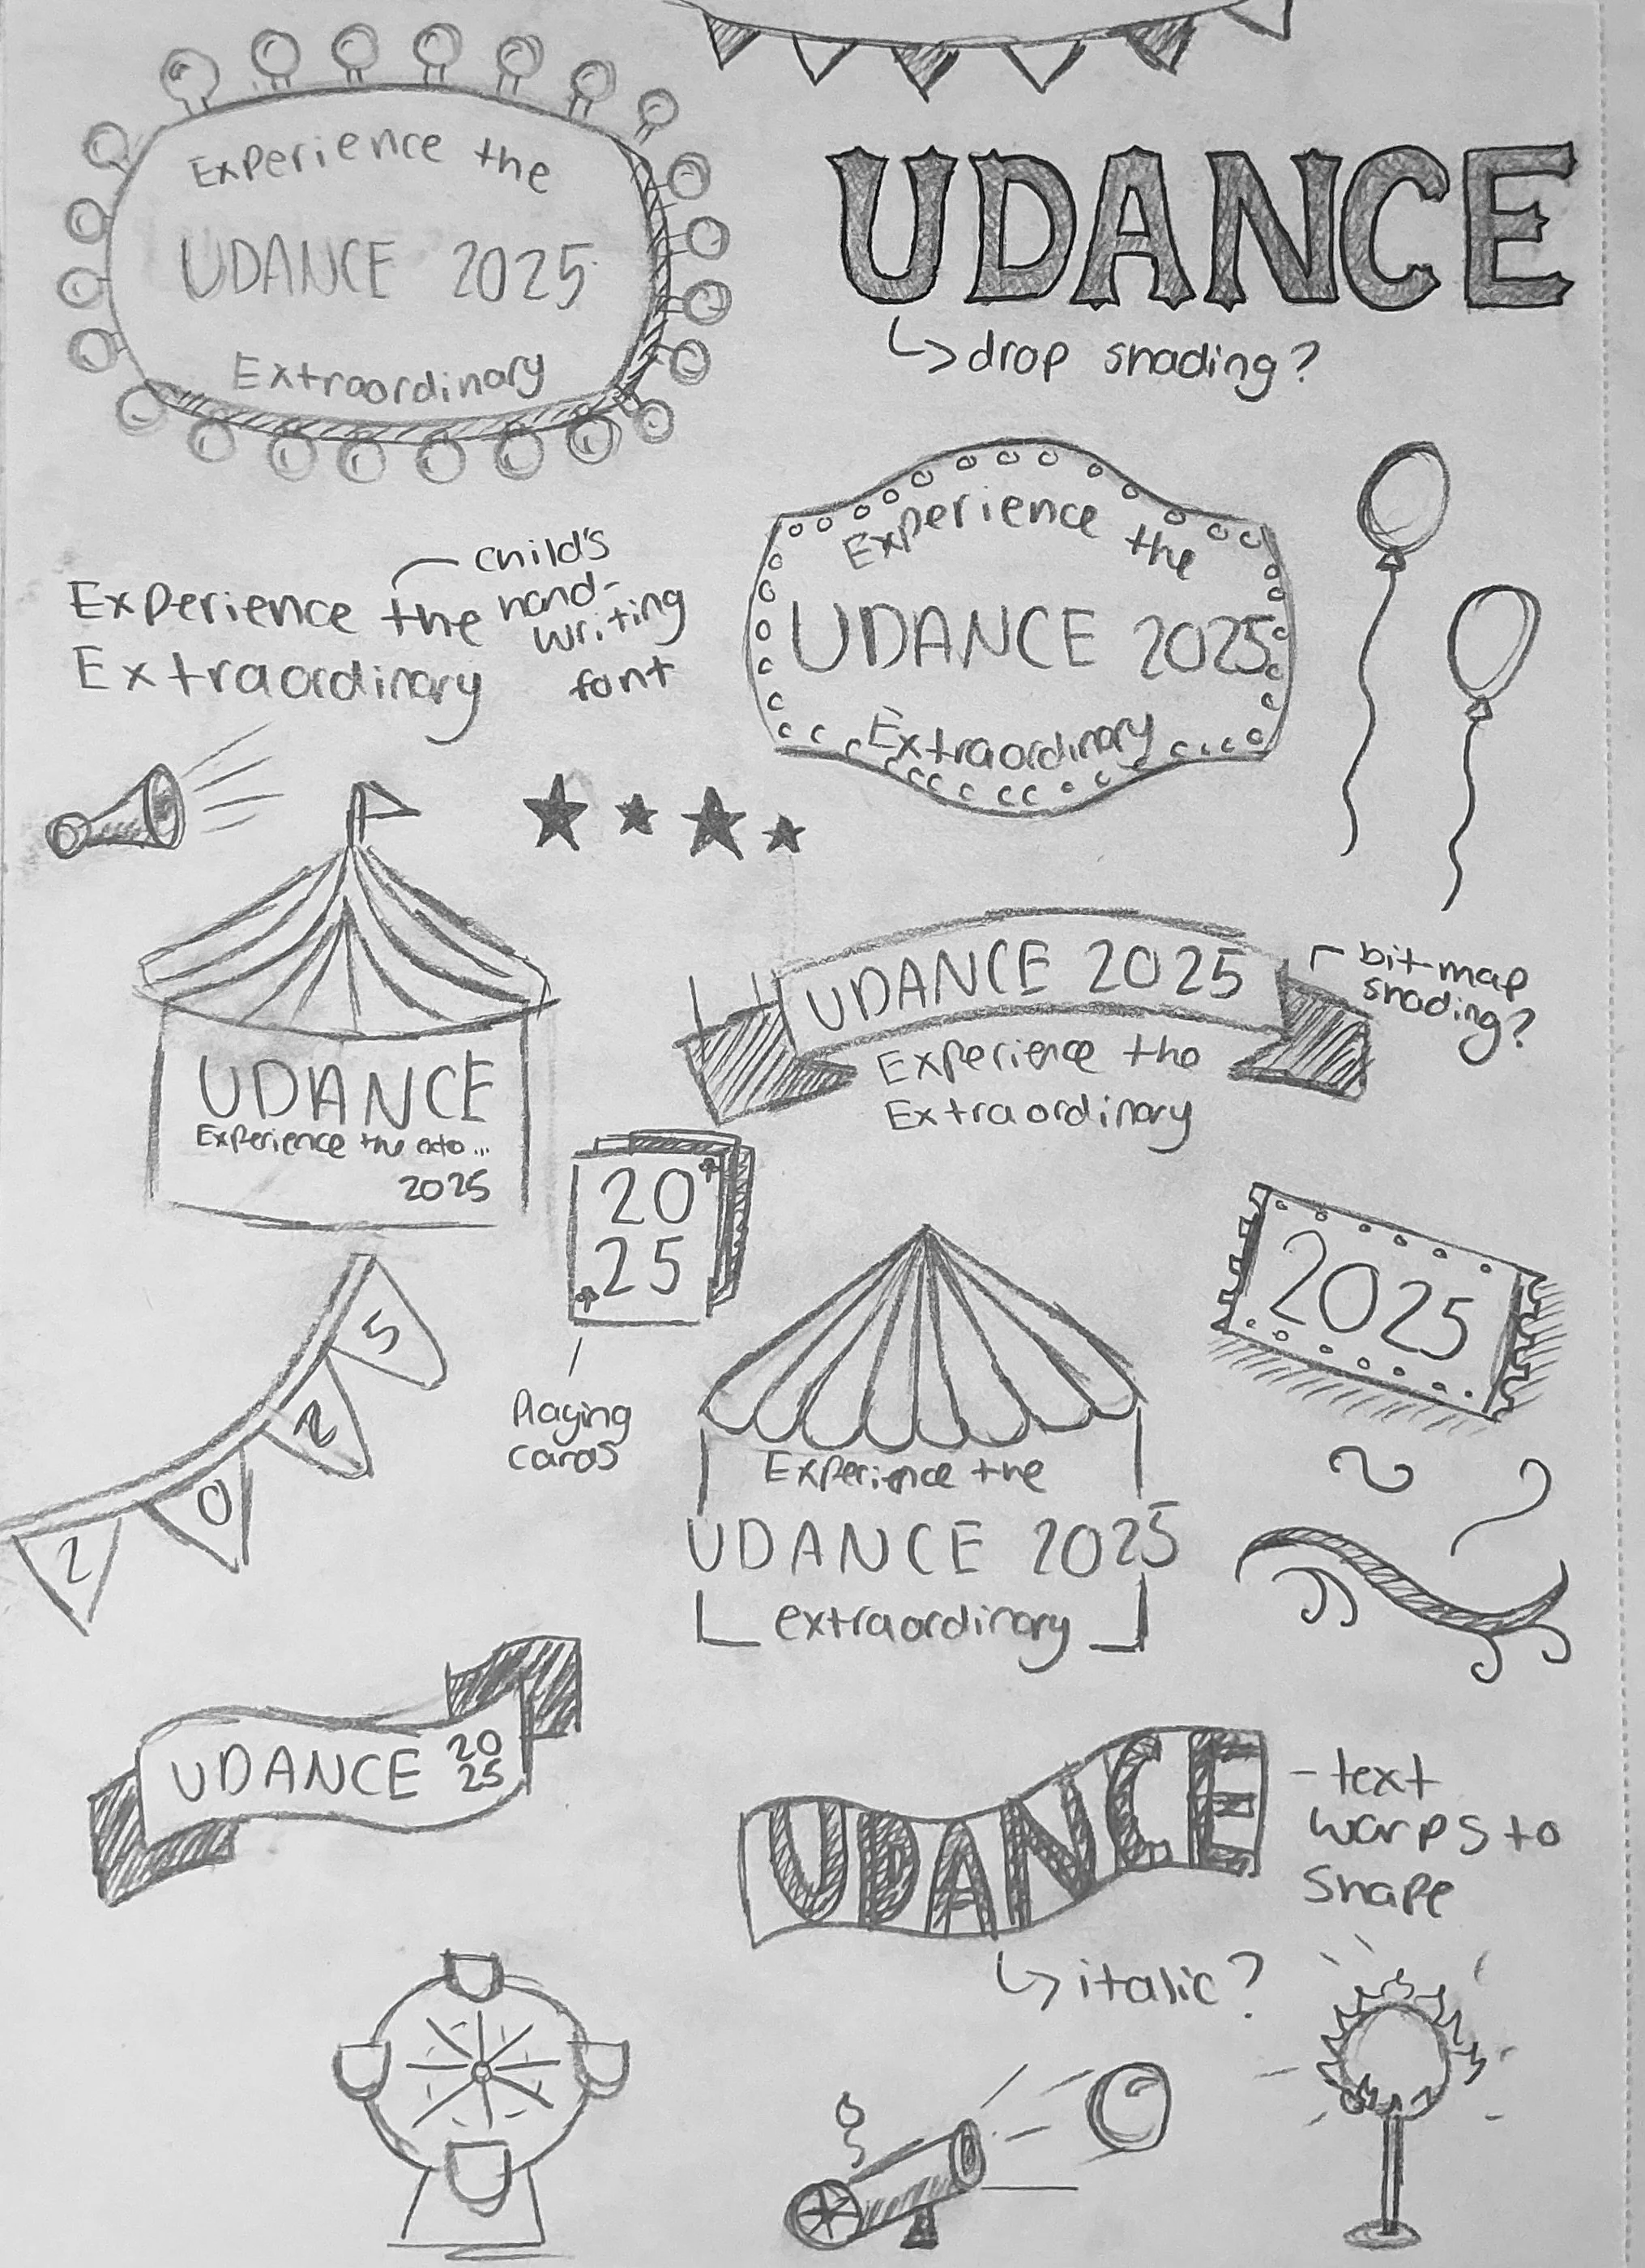 Experience the
UDANCE 2025
Extraordinary
UDANCE
drop shading?
child's
hand-
writing
font
Experience the
Extraordinary
Experience the
UDANCE 2025
Extraordinary
UDANCE 2025
Experience the
Extraordinary
bit-map
shading?
UDANCE
Experience the exto...
2025
20
25
Playing
cards
2025
2 0 2 5
Experience the
UDANCE 2025
extraordinary
UDANCE 20
25
UDANCE
- text
warps to
shape
italic?